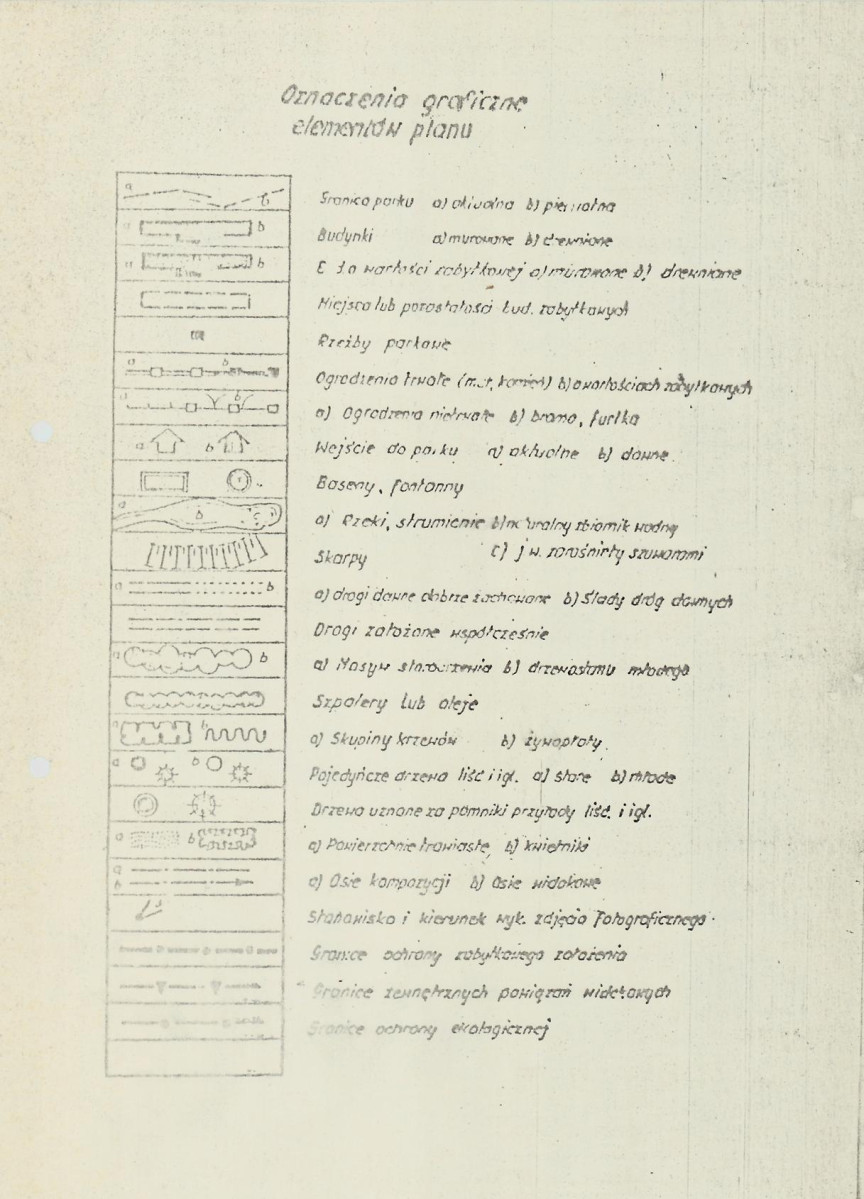 Oznaczenia graficzne
elementów planu
a b Granica parku a) aktualna b) pierwotna
a b Budynki a) murowane b) drewniane
a b o wartości zabytkowej a) murowane b) drewniane
Miejsca lub pozostałości bud. zabytkowych
Rzeźby parkowe
a b Ogrodzenia trwałe (mur, kamień) b) o wartościach zabytkowych
a b a) Ogrodzenia nietrwałe b) brama, furtka
a b Wejście do parku a) aktualne b) dawne
Baseny, fontanny
a b c a) Rzeki, strumienie b) naturalny zbiornik wodny
c) j w. zarośnięty szuwarami
Skarpy
a b a) drogi dawne dobrze zachowane b) Ślady dróg dawnych
Drogi założone współcześnie
a b a) Masyw starodrzewia b) drzewostanu młodego
Szpalery lub aleje
a b a) Skupiny krzewów b) żywopłoty
a b Pojedyńcze drzewa liść i igl. a) stare b) młode
Drzewa uznane za pomniki przyrody liść. i igl.
a b a) Powierzchnie trawiaste, b) kwietniki
a
b a) Osie kompozycji b) Osie widokowe
Stanowisko i kierunek wyk. zdjęcia fotograficznego.
Granice ochrony zabytkowego założenia
Granice zewnętrznych powiązań widokowych
Granice ochrony ekologicznej